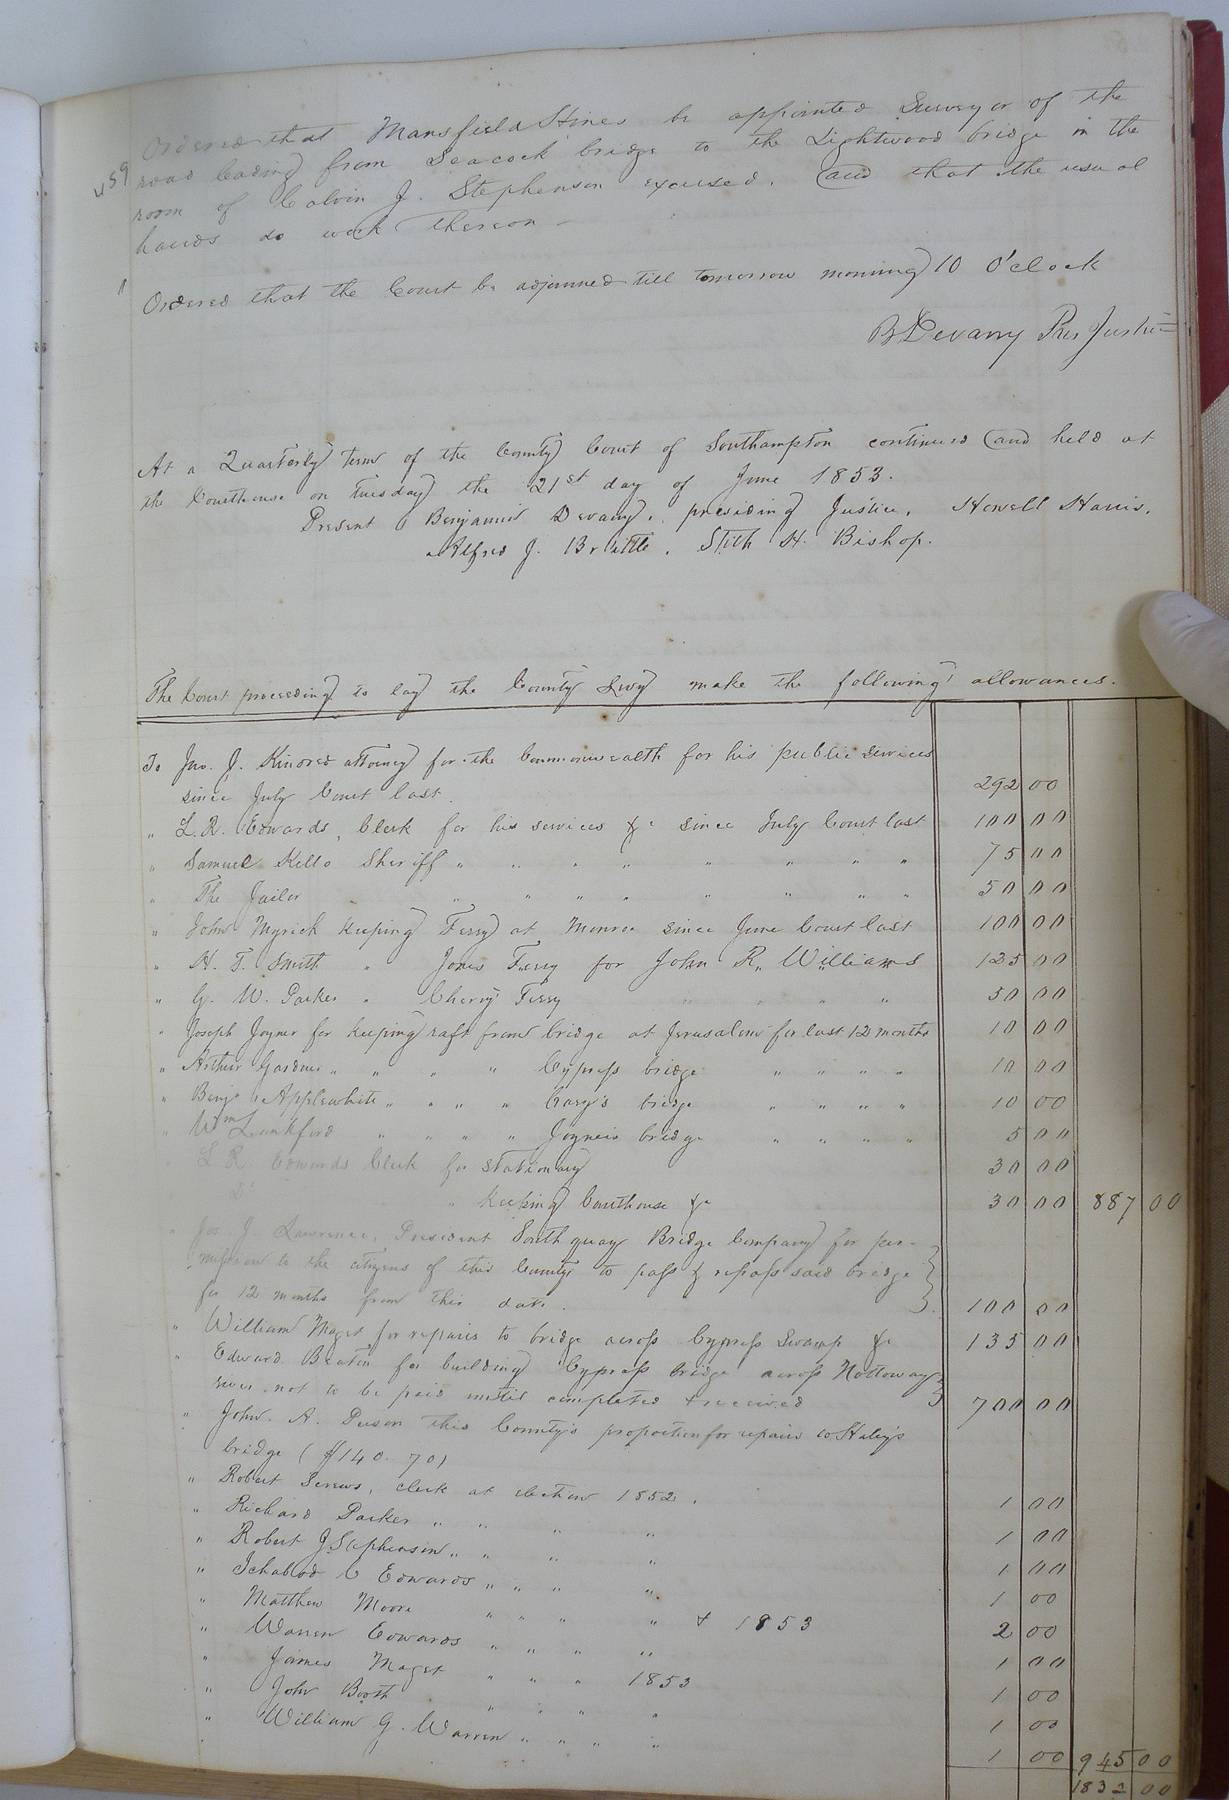 459
Ordered that Mansfield Hines be appointed Surveyor of the
road leading from Seacock bridge to the Lightwood bridge in the
room of Calvin J. Stephenson excused. and that the usual
hands do work thereon -
Ordered that the Court be adjourned till tomorrow morning 10 O'clock
B Devany Pres Justice
At a Quarterly term of the County Court of Southampton continued and held at
the Courthouse on Tuesday the 21st day of June 1853.
Present Benjamin Devany, presiding Justice, Howell Harris,
Alfred J. Brittle, Stith H. Bishop.
The Court proceeding to lay the County Levy make the following allowances.
To Jno. J. Kindred attorney for the Commonwealth for his public services
since July Court last. 292 00
" L. R. Edwards, Clerk for his services &c since July Court last 100 00
" Samuel Kello Sheriff " " " " " " " " 75 00
" The Jailor " " " " " " " " 50 00
" John Myrick keeping Ferry at Monroe since June Court last 100 00
" H. T. Smith " Jones Ferry for John R. Williams 125 00
" G. W. Parker " Cherry Ferry " " " " 50 00
" Joseph Joyner for keeping raft from bridge at Jerusalem for last 12 months 10 00
" Arthur Gardner " " " " Cypress bridge " " " " 10 00
" Benjn Applewhite " " " " Cary's bridge " " " " 10 00
" Wm Lankford " " " " Joyner's bridge " " " " 5 00
" L. R. Edwards Clerk for stationary 30 00
" Do " keeping Courthouse &c 30 00 887 00
" Jas. J. Lawrence, President South quay Bridge Company for per-
mission to the citizens of this County to pass & repass said bridge
for 12 months from this date. 100 00
" William Maget for repairs to bridge across Cypress Swamp &c 135 00
" Edward Beaton for building Cypress bridge across Nottoway
river not to be paid until completed & received 700 00
" John A. Person this County's proportion for repairs to Haley's
bridge ($140.70)
" Robert Screws, clerk at election 1852. 1 00
" Richard Parker " " " " 1 00
" Robert J. Stephenson " " " " 1 00
" Ichabod C Edwards " " " " 1 00
" Matthew Moore " " " " & 1853 2 00
" Warren Edwards " " " " 1 00
" James Maget " " " 1853 1 00
" John Booth " " " " 1 00
" William G. Warren " " " " 1 00 945 00
1832 00